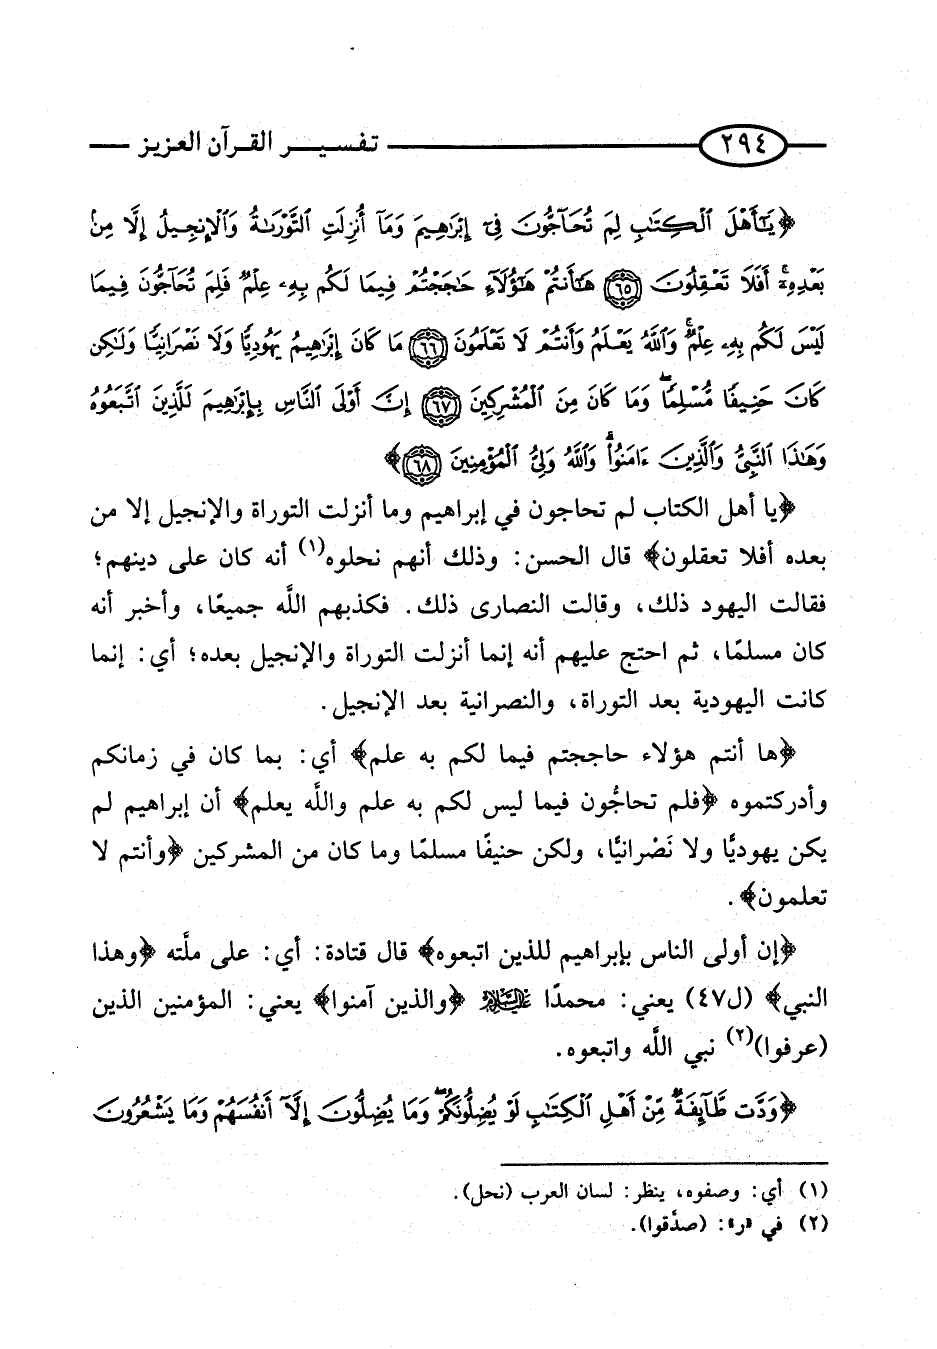 ٢٩٤ تفسير القرآن العزيز
﴿يَٰٓأَهْلَ ٱلْكِتَٰبِ لِمَ تُحَآجُّونَ فِىٓ إِبْرَٰهِيمَ وَمَآ أُنزِلَتِ ٱلتَّوْرَىٰةُ وَٱلْإِنجِيلُ إِلَّا مِنۢ
بَعْدِهِۦٓ ۚ أَفَلَا تَعْقِلُونَ ۝٦٥ هَٰٓأَنتُمْ هَٰٓؤُلَآءِ حَٰجَجْتُمْ فِيمَا لَكُم بِهِۦ عِلْمٌ فَلِمَ تُحَآجُّونَ فِيمَا
لَيْسَ لَكُم بِهِۦ عِلْمٌ ۚ وَٱللَّهُ يَعْلَمُ وَأَنتُمْ لَا تَعْلَمُونَ ۝٦٦ مَا كَانَ إِبْرَٰهِيمُ يَهُودِيًّا وَلَا نَصْرَانِيًّا وَلَٰكِن
كَانَ حَنِيفًا مُّسْلِمًا ۖ وَمَا كَانَ مِنَ ٱلْمُشْرِكِينَ ۝٦٧ إِنَّ أَوْلَى ٱلنَّاسِ بِإِبْرَٰهِيمَ لَلَّذِينَ ٱتَّبَعُوهُ
وَهَٰذَا ٱلنَّبِىُّ وَٱلَّذِينَ ءَامَنُوا۟ ۗ وَٱللَّهُ وَلِىُّ ٱلْمُؤْمِنِينَ ۝٦٨﴾
﴿يا أهل الكتاب لم تحاجون في إبراهيم وما أنزلت التوراة والإنجيل إلا من
بعده أفلا تعقلون﴾ قال الحسن: وذلك أنهم نحلوه(١) أنه كان على دينهم؛
فقالت اليهود ذلك، وقالت النصارى ذلك. فكذبهم اللَّه جميعًا، وأخبر أنه
كان مسلمًا، ثم احتج عليهم أنه إنما أنزلت التوراة والإنجيل بعده؛ أي: إنما
كانت اليهودية بعد التوراة، والنصرانية بعد الإنجيل.
﴿ها أنتم هؤلاء حاججتم فيما لكم به علم﴾ أي: بما كان في زمانكم
وأدركتموه ﴿فلم تحاجُّون فيما ليس لكم به علم واللَّه يعلم﴾ أن إبراهيم لم
يكن يهوديًّا ولا نَصْرانيًّا، ولكن حنيفًا مسلمًا وما كان من المشركين ﴿وأنتم لا
تعلمون﴾.
﴿إن أولى الناس بإبراهيم للذين اتبعوه﴾ قال قتادة: أي: على ملَّته ﴿وهذا
النبي﴾ (ل٤٧) يعني: محمدًا عليه السلام ﴿والذين آمنوا﴾ يعني: المؤمنين الذين
(عرفوا)(٢) نبي اللَّه واتبعوه.
﴿وَدَّت طَّآئِفَةٌ مِّنْ أَهْلِ ٱلْكِتَٰبِ لَوْ يُضِلُّونَكُمْ ۖ وَمَا يُضِلُّونَ إِلَّآ أَنفُسَهُمْ وَمَا يَشْعُرُونَ
(١) أي: وصفوه، ينظر: لسان العرب (نحل).
(٢) في «ر»: (صدَّقوا).